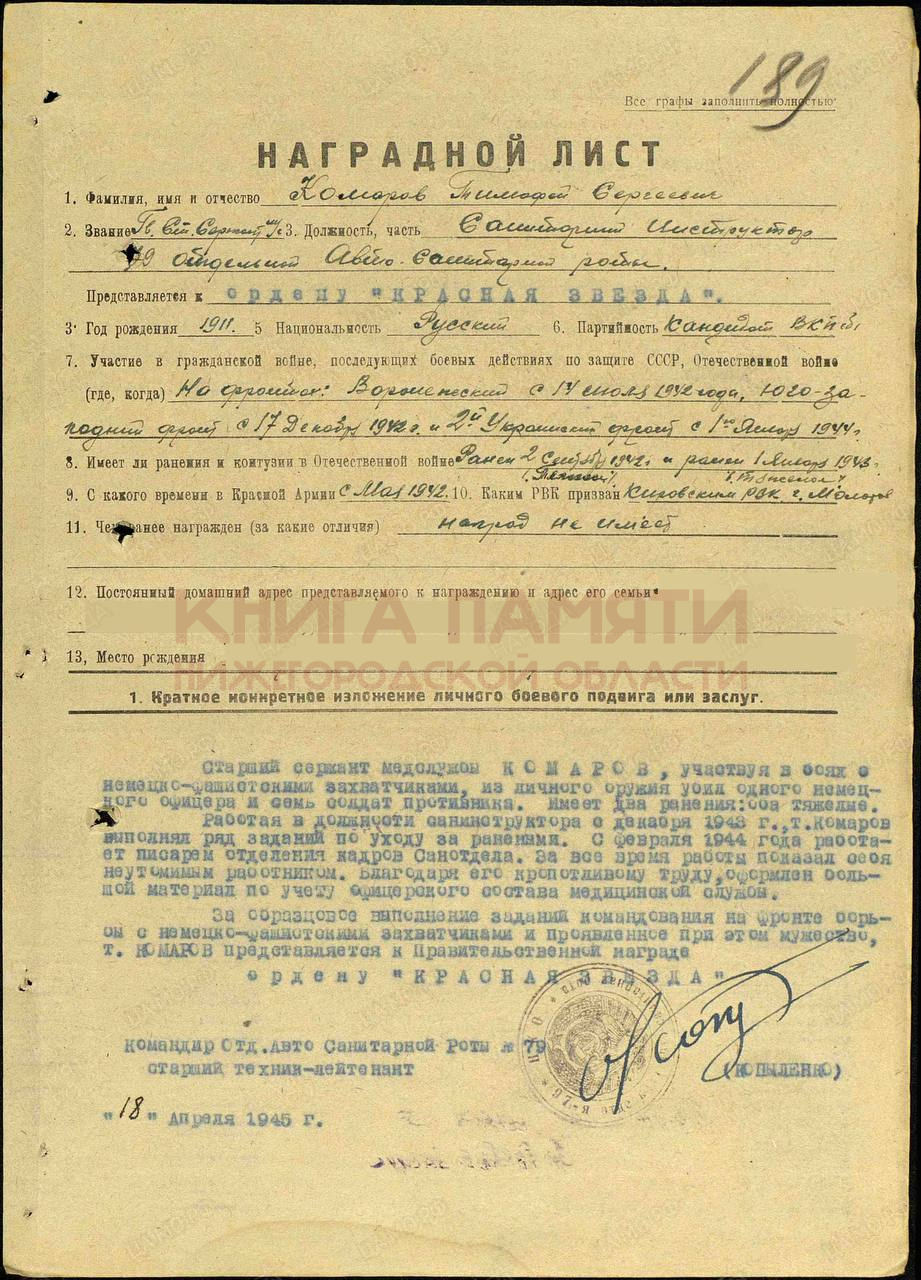 189
Все графы заполнить полностью
НАГРАДНОЙ ЛИСТ
1. Фамилия, имя и отчество Комаров Тимофей Сергеевич
2. Звание Гв. Ст. Сержант м/с 3. Должность, часть Санитарный Инструктор
79 отдельной Авто-Санитарной роты.
Представляется к ордену "КРАСНАЯ ЗВЕЗДА".
3· Год рождения 1911. 5 Национальность Русский 6. Партийность Кандидат ВКП(б)
7. Участие в гражданской войне, последующих боевых действиях по защите СССР, Отечественной войне
(где, когда) На фронтах: Воронежский с 14 июля 1942 года, Юго-за-
падный фронт с 17 Декабря 1942 г. и 2й Украинский фронт с 1го Января 1944 г.
8. Имеет ли ранения и контузии в Отечественной войне Ранен 2 Сентября 1942 г. и ранен 1 Января 1943 г.
(Тяжело) (Тяжело)
9. С какого времени в Красной Армии с Мая 1942. 10. Каким РВК призван Кировским РВК г. Молотов
11. Чем ранее награжден (за какие отличия) наград не имеет
12. Постоянный домашний адрес представляемого к награждению и адрес его семьи
КНИГА ПАМЯТИ
13, Место рождения
НИЖЕГОРОДСКОЙ ОБЛАСТИ
1. Краткое конкретное изложение личного боевого подвига или заслуг.
Старший сержант медслужбы КОМАРОВ, участвуя в боях с
немецко-фашистскими захватчиками, из личного оружия убил одного немец-
кого офицера и семь солдат противника. Имеет два ранения: оба тяжелые.
Работая в должности санинструктора с декабря 1943 г., т. Комаров
выполнял ряд заданий по уходу за ранеными. С февраля 1944 года работа-
ет писарем отделения кадров Санотдела. За все время работы показал себя
неутомимым работником. Благодаря его кропотливому труду, оформлен боль-
шой материал по учету офицерского состава медицинской службы.
За образцовое выполнение заданий командования на фронте борь-
бы с немецко-фашистскими захватчиками и проявленное при этом мужество,
т. КОМАРОВ представляется к Правительственной награде
ордену "КРАСНАЯ ЗВЕЗДА"
Командир Отд. Авто Санитарной Роты № 79
старший техник-лейтенант (КОПЫЛЕНКО)
"18" Апреля 1945 г.